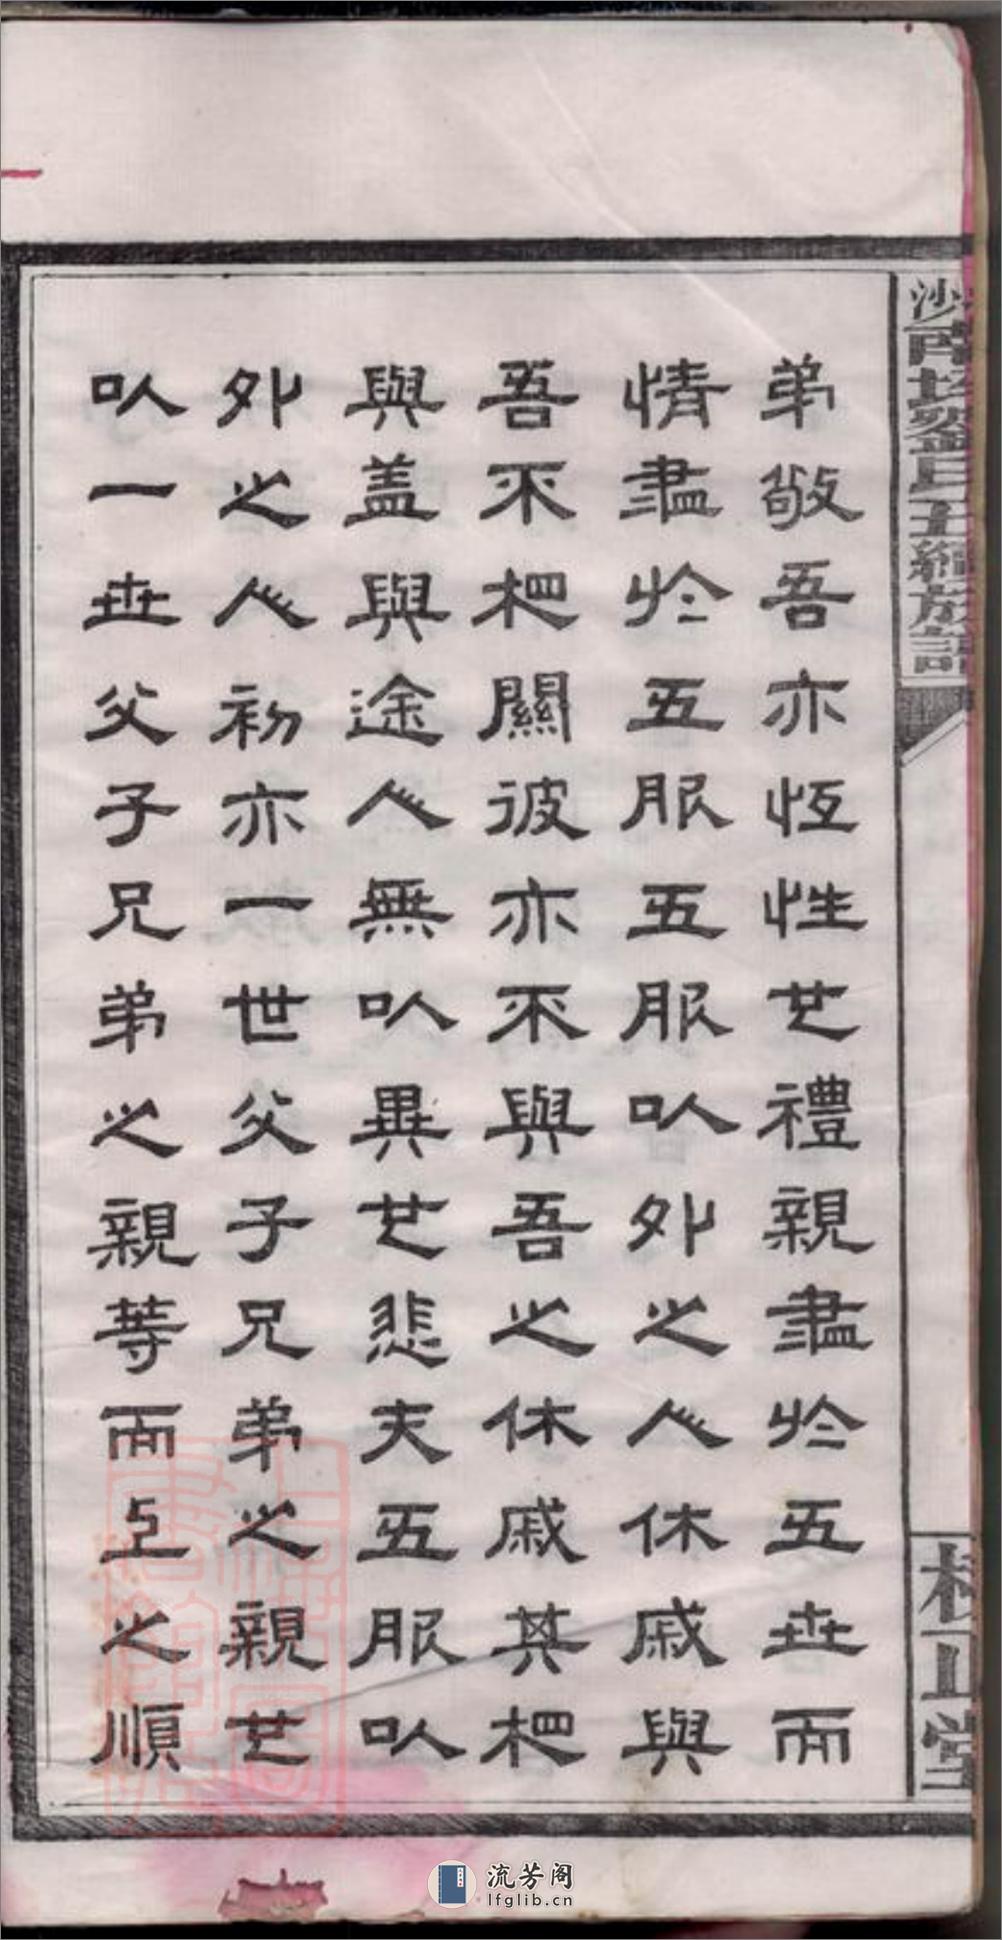 劉氏五
族譜
堂
弟敬吾亦恆性也禮親盡於五世而
情盡於五服五服以外之人休戚與
吾不相關彼亦不與吾之休戚其相
與盖與途人無以異也悲夫五服以
外之人初亦一世父子兄弟之親也
以一世父子兄弟之親等而上之順
流芳阁
lfglib.cn